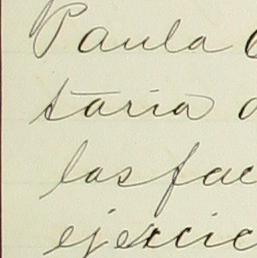 Paula
taria
las fac
ejercic